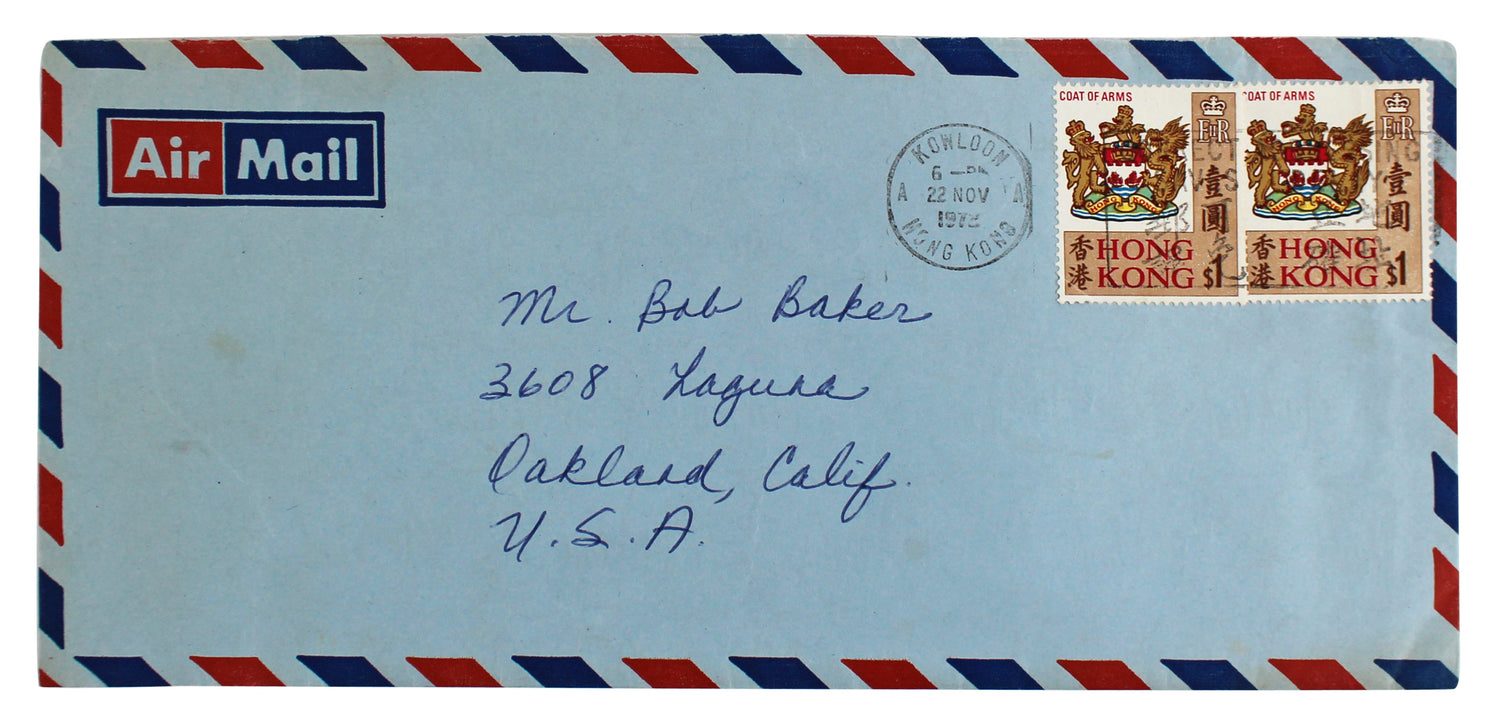 Air Mail
KOWLOON
6 —PM
A 22 NOV A
HONG KONG
COAT OF ARMS
EIIR
壹圓
香港
HONG KONG
$1
COAT OF ARMS
EIIR
壹圓
香港
HONG KONG
$1
Mr. Bob Baker
3608 Laguna
Oakland, Calif.
U.S.A.